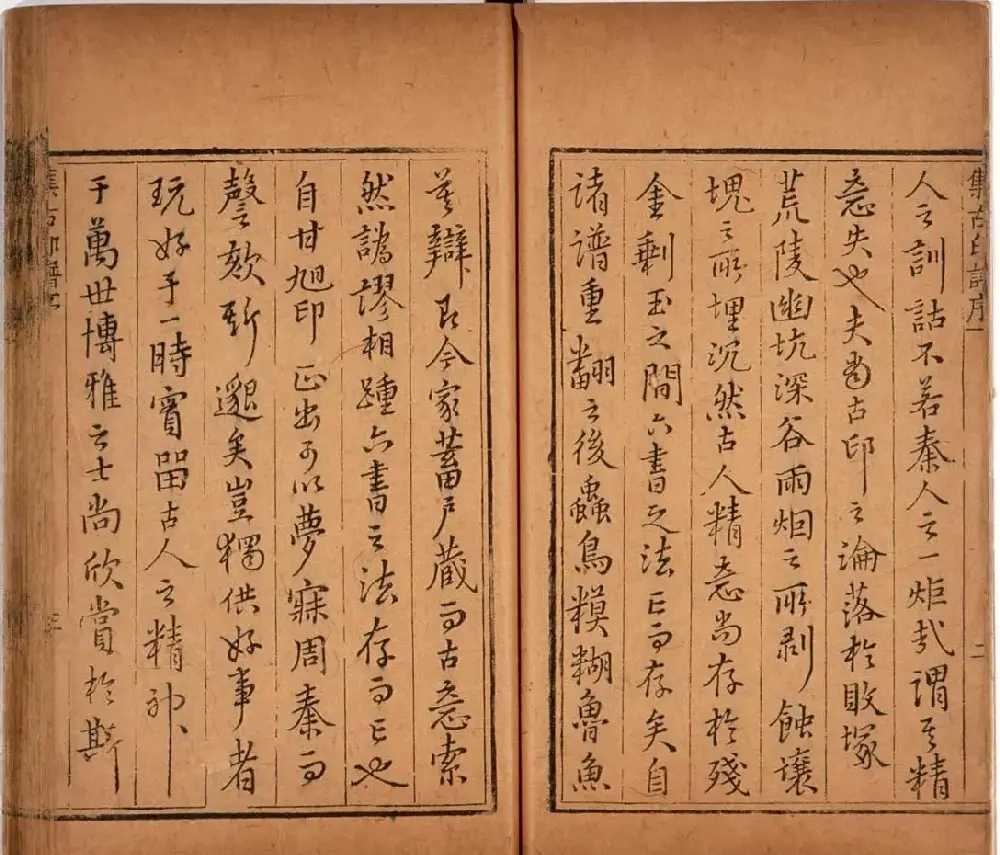 集古印譜序
二
人之訓詁不若秦人之一炬哉謂其精
意失也夫尚古印之論落於敗塚
荒陵幽坑深谷雨烟之所剥蝕壤
塊之所埋沉然古人精意尚存於殘
金剩玉之間六書之法亡而存矣自
諸譜重翻之後蟲鳥糢糊魯魚
莫辯即今家蓄戶藏而古意索
然譌謬相踵六書之法存而亡也
自甘旭印正出可以夢寐周秦而
謦欬斯邈矣豈獨供好事者
玩好于一時實留古人之精神
于萬世博雅之士尚欣賞於斯
集古印譜序
三